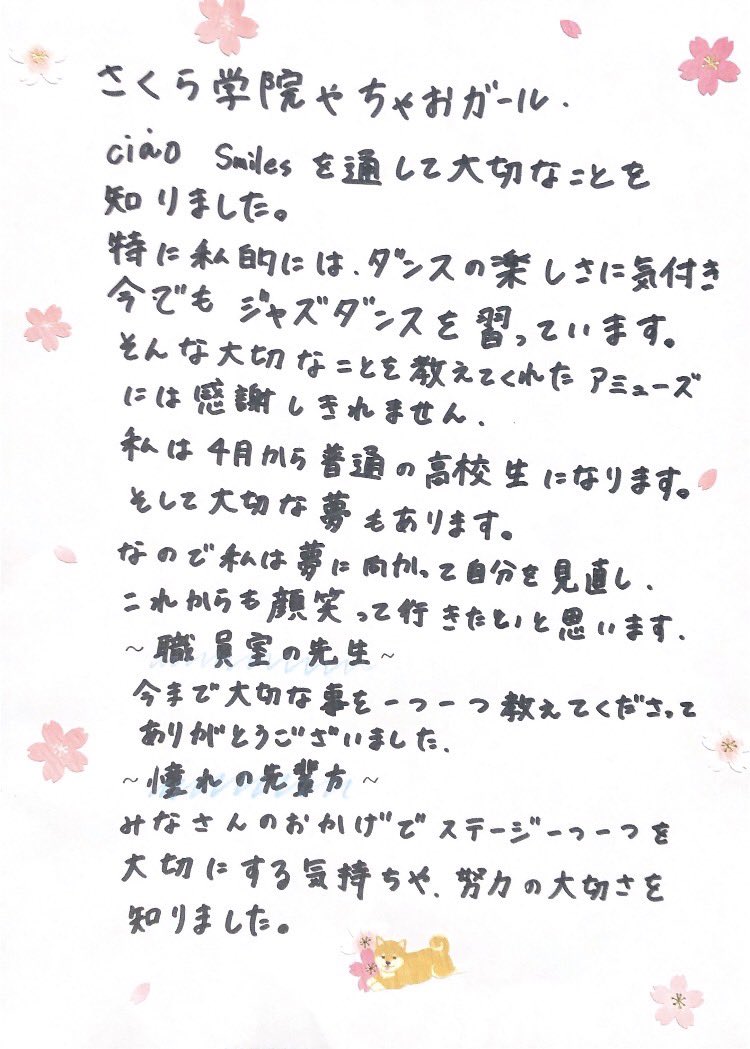 さくら学院やちゃおガール.
ciao Smilesを通して大切なことを
知りました。
特に私的には、ダンスの楽しさに気付き
今でもジャズダンスを習っています。
そんな大切なことを教えてくれたアミューズ
には感謝しきれません.
私は4月から普通の高校生になります。
そして大切な夢もあります。
なので私は夢に向かって自分を見直し、
これからも顔笑って行きたいと思います.
~職員室の先生~
今まで大切な事を一つ一つ教えてくださって
ありがとうございました.
~憧れの先輩方~
みなさんのおかげでステージ一つ一つを
大切にする気持ちや、努力の大切さを
知りました。